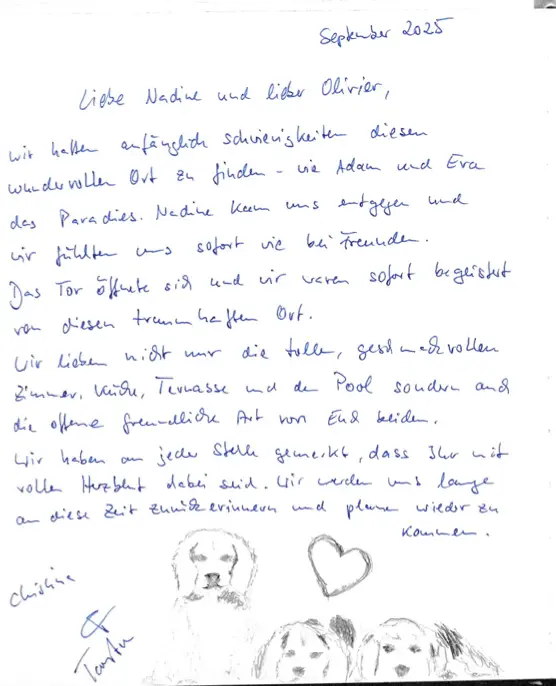 September 2025
Liebe Nadine und lieber Olivier,
wir hatten anfänglich schwierigkeiten diesen
wundervollen Ort zu finden - wie Adam und Eva
das Paradies. Nadine kam uns entgegen und
wir fühlten uns sofort wie bei Freunden.
Das Tor öffnete sich und wir waren sofort begeistert
von diesen traumhaften Ort.
Wir lieben nicht nur die tollen, geschmackvollen
Zimmer, Küche, Terrasse und den Pool sondern auch
die offene freundliche Art von Euch beiden.
Wir haben an jeder Stelle gemerkt, dass Ihr mit
vollen Herzblut dabei seid. Wir werden uns lange
an diese Zeit zurückerinnern und planen wieder zu
kommen.
Christine
&
Torsten